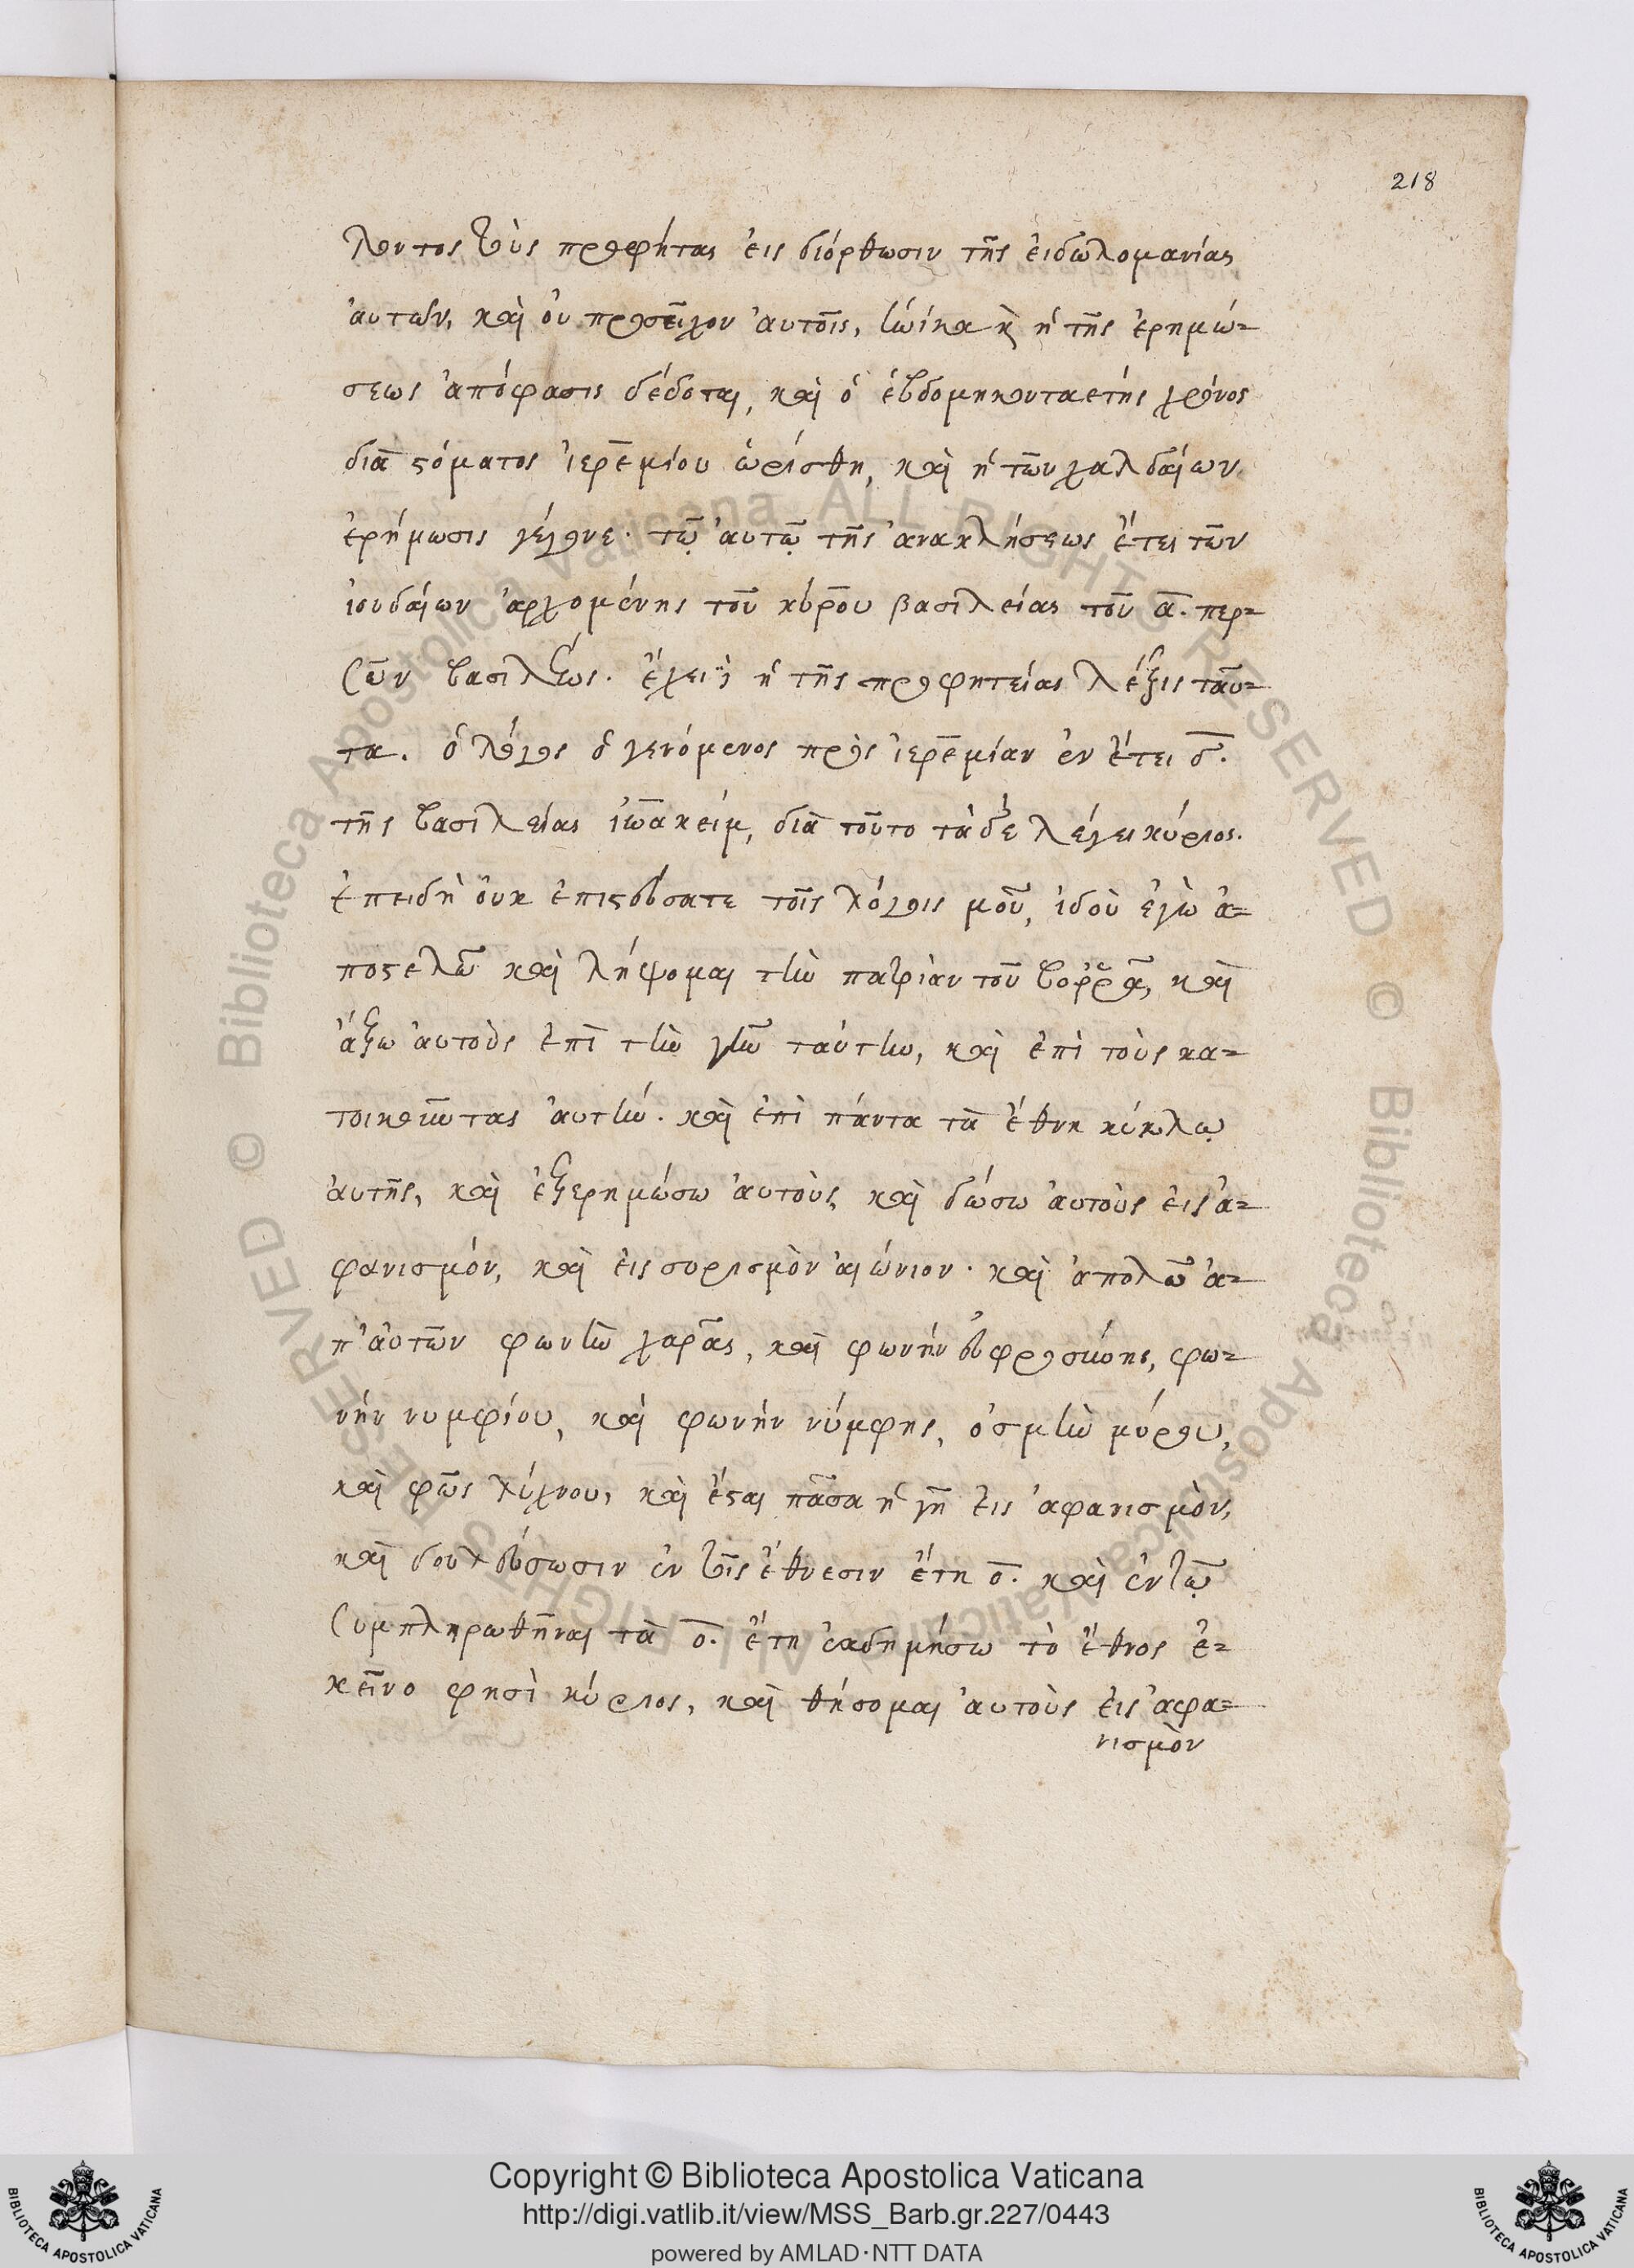 218
λοντος τοὺς προφήτας εἰς διόρθωσιν τῆς εἰδωλομανίας
αὐτῶν, καὶ οὐ προσεῖχον αὐτοῖς, τηνίκα κ̀ ἡ τῆς ἐρημώ=
σεως ἀπόφασις δέδοται, καὶ ὁ ἑβδομηκονταετής χρόνος
διὰ ϛόματος ἰερεμίου ὡρίσθη, καὶ ἡ τῶν χαλδαίων
ἐρήμωσις γέγονε· τῷ αὐτῷ τῆς ἀνακλήσεως ἔτει τῶν
ἰουδαίων ἀρχομένης τοῦ κύρου βασιλείας τοῦ α̅. περ=
σῶν βασιλέως. ἔχει ἡ τῆς προφητείας λέξις ταῦ=
τα. ὁ λόγος ὁ γενόμενος πρὸς ἰερεμίαν ἐν ἔτει δ̅.
τῆς βασιλείας ἰωακείμ, διὰ τοῦτο τὰδε λέγει κύριος.
ἐπειδὴ οὐκ ἐπιϛεύσατε τοῖς λόγοις μοῦ, ἰδοὺ ἐγὼ ἀ=
ποϛελῶ καὶ λήψομαι τὴν πατριὰν τοῦ βοῤῥᾶ, καὶ
ἄξω αὐτοὺς ἐπὶ τὴν γῆν ταύτην, καὶ ἐπὶ τοὺς κα=
τοικοῦντας αὐτήν. καὶ ἐπὶ πάντα τὰ ἔθνη κύκλῳ
αὐτῆς, καὶ ἐξερημώσω αὐτοὺς, καὶ δώσω αὐτοὺς εἰς ἀ=
φανισμόν, καὶ εἰς συρισμὸν αἰώνιον· καὶ ἀπολῶ ἀ=
π' αὐτῶν φωνὴν χαρᾶς, καὶ φωνὴν εὐφροσύνης, φω=
νὴν νυμφίου, καὶ φωνὴν νύμφης, ὀσμὴν μύρου,
καὶ φῶς λύχνου, καὶ ἔϛαι πᾶσα ἡ γῆ εἰς ἀφανισμὸν,
καὶ δουλεύσωσιν ἐν τοῖς ἔθνεσιν ἔτη ο̅. καὶ ἐν τῷ
συμπληρωθῆναι τὰ ο̅. ἔτη ἐκδημήσω τὸ ἔθνος ἐ=
κεῖνο φησὶ κύριος, καὶ θήσομαι αὐτοὺς εἰς ἀφα=
νισμὸν
Copyright © Biblioteca Apostolica Vaticana
http://digi.vatlib.it/view/MSS_Barb.gr.227/0443
powered by AMLAD·NTT DATA
BIBLIOTECA APOSTOLICA VATICANA
BIBLIOTECA APOSTOLICA VATICANA
© Biblioteca Apostolica Vaticana ALL RIGHTS RESERVED
© Biblioteca Apostolica Vaticana ALL RIGHTS RESERVED